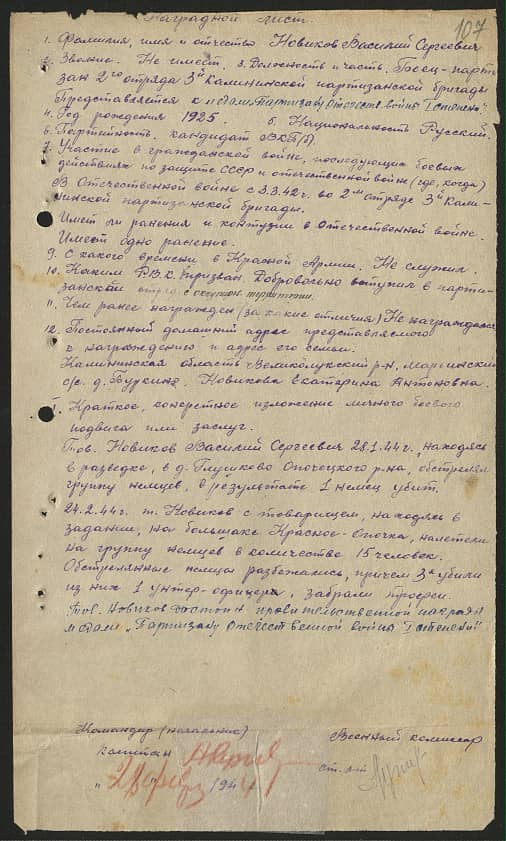 107
Наградной лист.
1. Фамилия, имя и отчество Новиков Василий Сергеевич
2. Звание. Не имеет. 3. Должность и часть. Боец-парти
зан 2го отряда 3й Калининской партизанской бригады
Представляется к медали „Партизану Отечеств. войны I степени"
4. Год рождения 1925. 5. Национальность Русский.
6. Партийность. кандидат ВКП(б).
7. Участие в гражданской войне, последующих боевых
действиях по защите СССР и отечественной войне (где, когда)
В Отечественной войне с 3.3.42г. во 2м отряде 3й Кали-
нинской партизанской бригады.
Имеет ли ранения и контузии в Отечественной войне.
Имеет одно ранение.
9. С какого времени в Красной Армии. Не служил.
10. Каким РВК призван. Добровольно вступил в парти-
занский отряд с оккупир. территории.
11. Чем ранее награжден (за какие отличия) Не награждался
12. Постоянный домашний адрес представляемого
к награждению и адрес его семьи.
Калининская область Великолукский р-н,
с/с. д. Буркино, Новикова Екатерина Антоновна.
I. Краткое, конкретное изложение личного боевого
подвига или заслуг.
Тов. Новиков Василий Сергеевич 28.1.44г., находясь
в разведке, в д. Глушково Опочецкого р-на, обстрелял
группу немцев, в результате 1 немец убит.
24.2.44г. т. Новиков с товарищем, находясь в
задании, на большаке Красное-Опочка, налетели
на группу немцев в количестве 15 человек.
Обстрелянные немцы разбежались, причем 3х убили
из них 1 унтер-офицера, забрали трофеи.
Тов. Новиков достоин правительственной награды
медали „Партизану Отечественной войны I степени"
Командир (начальник) Военный комиссар
капитан
ст. л-т
" " 1944